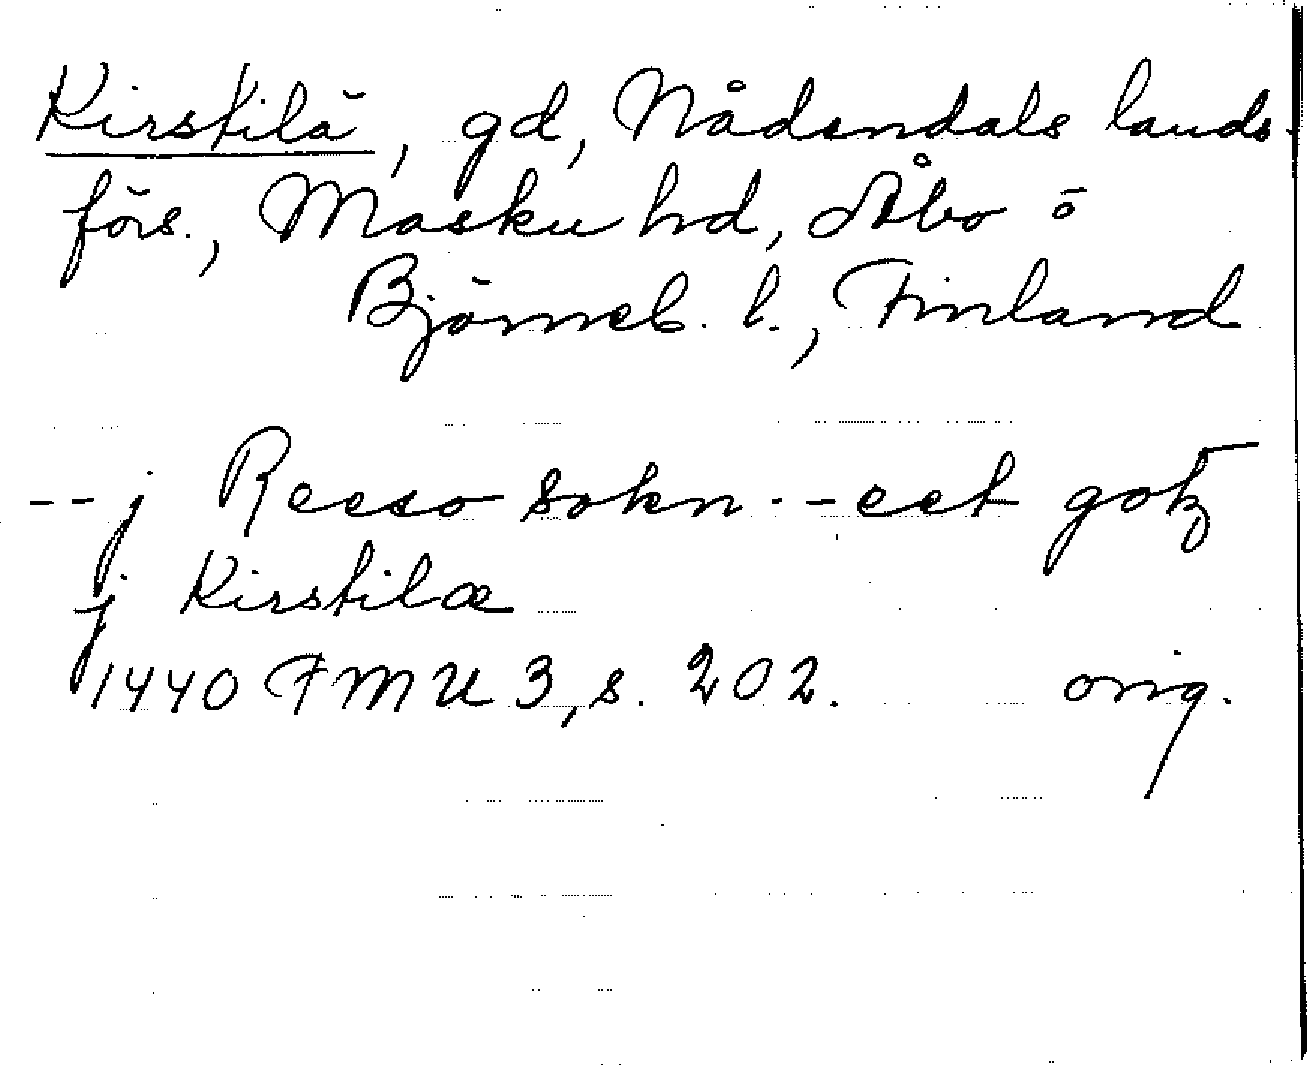 Kirstilä, gd, Nådendals lands-
förs., Masku hd, Åbo o
Björneb. l., Finland
-- j Reeso sokn -- eet gotz
j Kirstilæ
1440 FMU 3, s. 202. orig.